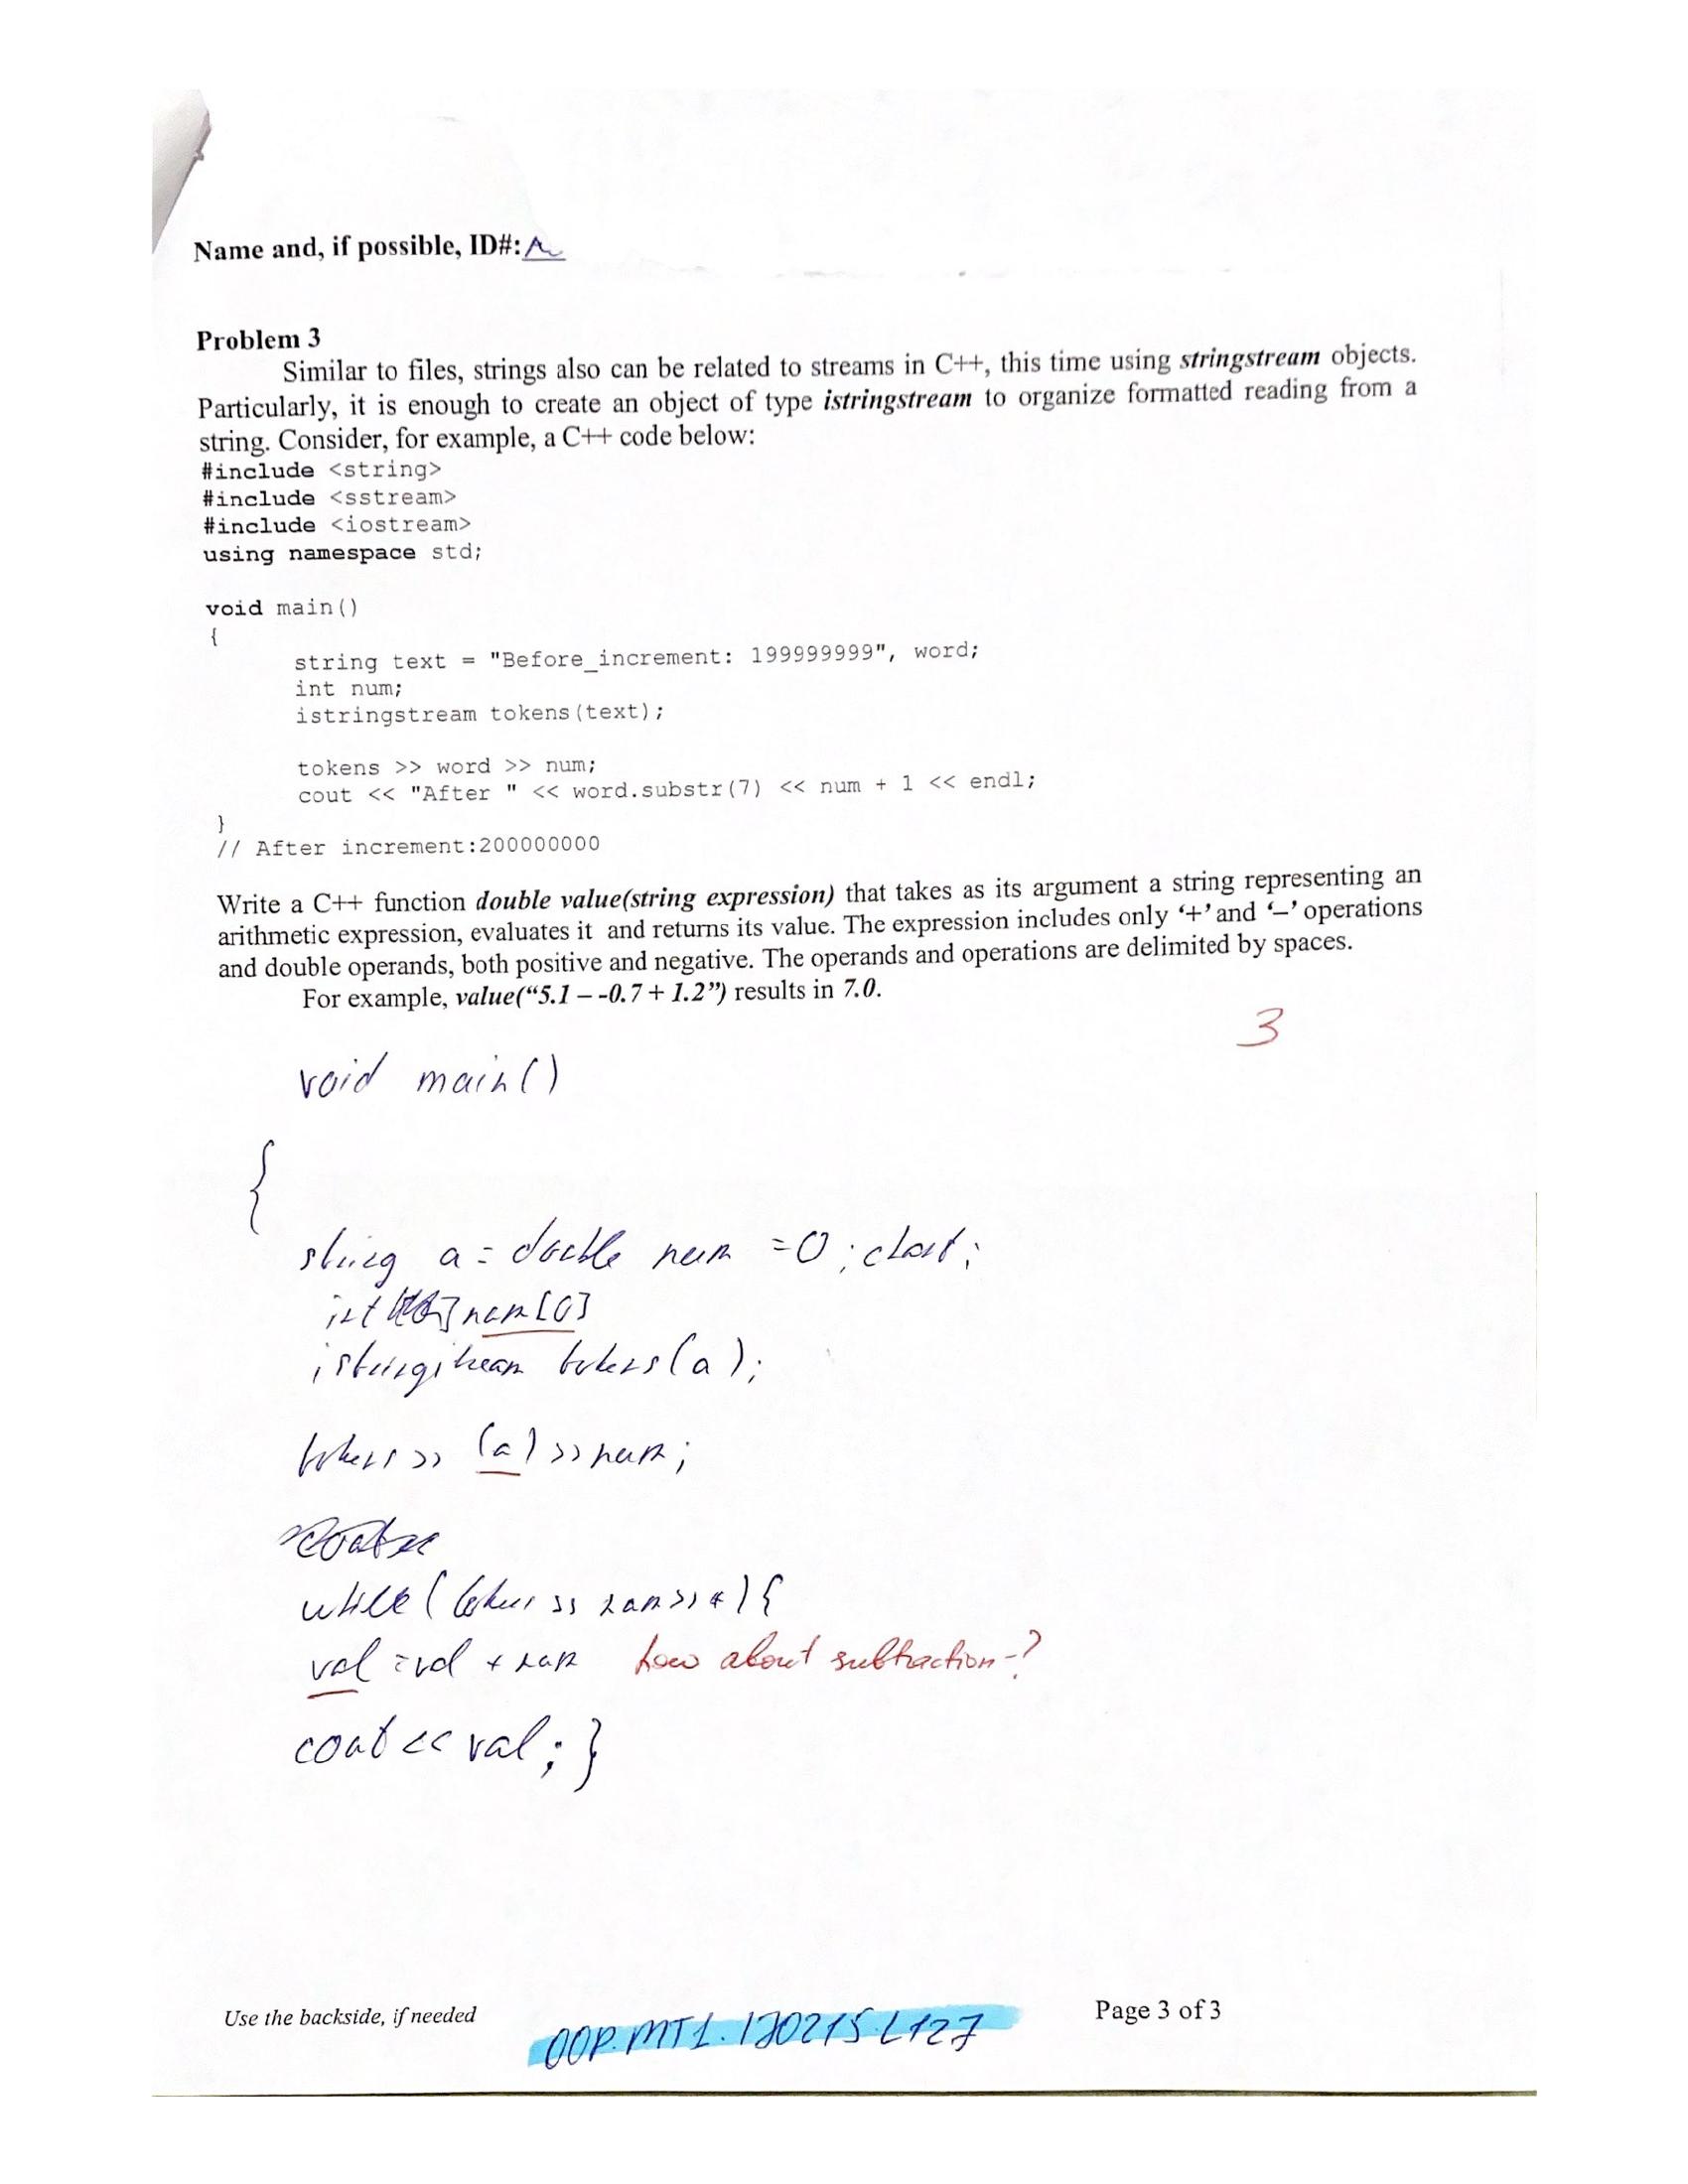 Name and, if possible, ID#:
Problem 3
Similar to files, strings also can be related to streams in C++, this time using stringstream objects.
Particularly, it is enough to create an object of type istringstream to organize formatted reading from a
string. Consider, for example, a C++ code below:
#include <string>
#include <sstream>
#include <iostream>
using namespace std;
void main()
{
string text = "Before_increment: 199999999", word;
int num;
istringstream tokens(text);
tokens >> word >> num;
cout << "After " << word.substr(7) << num + 1 << endl;
}
// After increment:200000000
Write a C++ function double value(string expression) that takes as its argument a string representing an
arithmetic expression, evaluates it and returns its value. The expression includes only ‘+’ and ‘–’ operations
and double operands, both positive and negative. The operands and operations are delimited by spaces.
For example, value(“5.1 – -0.7 + 1.2”) results in 7.0.
3
void main()
{
string a = double num = 0 ;
int num[0]
tokens(a);
tokens >> (a) >> num;
while (
val = val + num how about subtraction -?
cout << val; }
Use the backside, if needed
Page 3 of 3
OOP.MT1.170215.L127